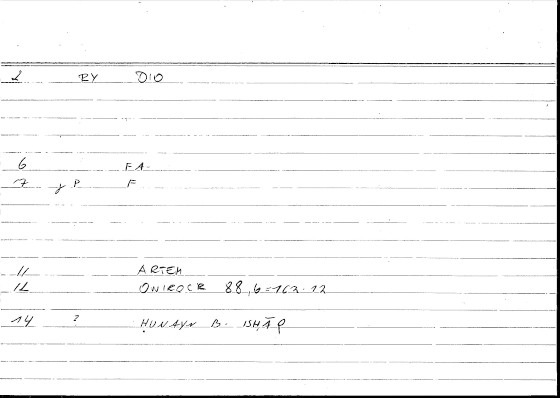 2 RY DIO
6 FA.
7 γ P F
11 ARTEM
12 ONIROCR 88,6=163.12
14 ? ḤUNAYN B. ISḤĀQ